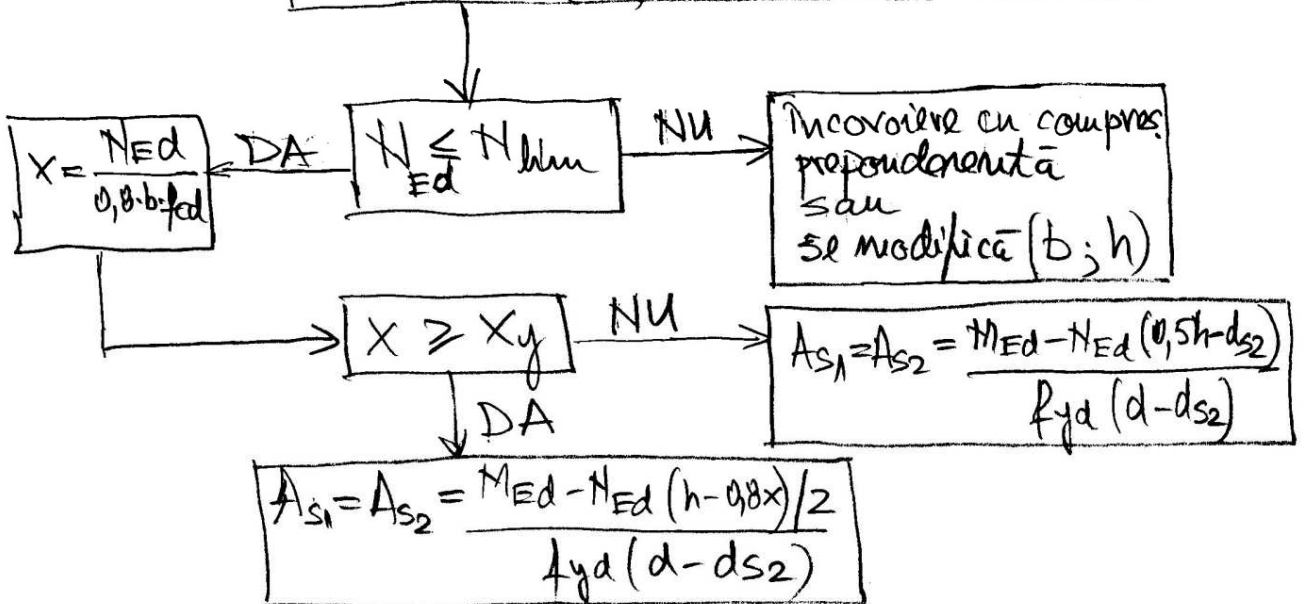 N_Ed ≤ N_lim
DA
NU
X = N_Ed / 0,8·b·fcd
Încovoiere cu compres.
preponderentă
sau
se modifică (b; h)
X ≥ Xy
NU
DA
A_S1 = A_S2 = M_Ed - N_Ed (0,5h - d_S2) / f_yd (d - d_S2)
A_S1 = A_S2 = M_Ed - N_Ed (h - 0,8x)/2 / f_yd (d - d_S2)